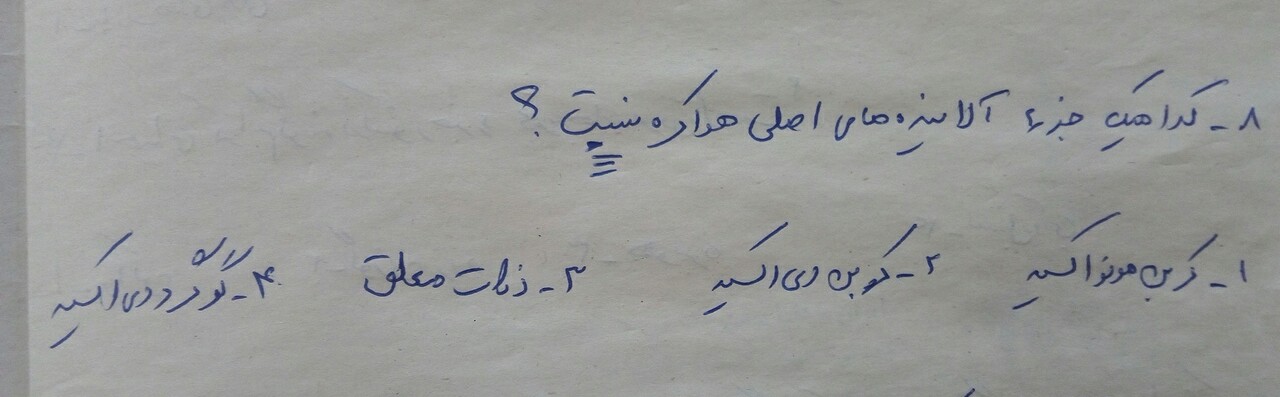 ۸- کدامیک جزء آلاینده‌های اصلی هوا کره نیست ؟
۱- کربن مونو اکسید ۲- کربن دی اکسید ۳- ذرات معلق ۴- گوگرد دی اکسید